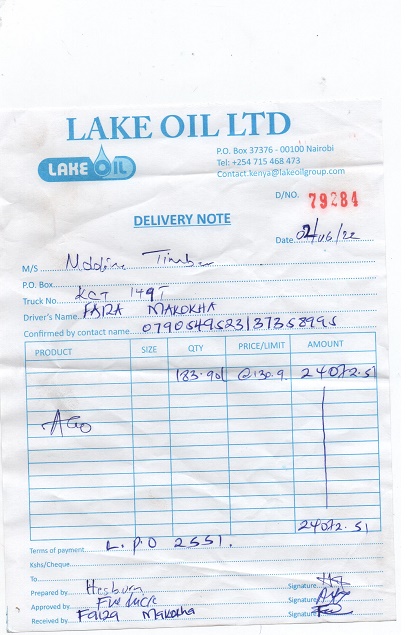 LAKE OIL LTD
LAKE OIL
P.O. Box 37376 - 00100 Nairobi
Tel: +254 715 468 473
Contact.kenya@lakeoilgroup.com
D/NO. 79284
DELIVERY NOTE
Date 02/06/22
M/S Timber
P.O. Box
Truck No. KCT 149T
Driver's Name FAIZA MAKOKHA
Confirmed by contact name 0790549523/37358995
PRODUCT SIZE QTY PRICE/LIMIT AMOUNT
183.90L @130.9 24072.51
AGO
24072.51
Terms of payment L.P.O 2551.
Kshs/Cheque
To
Prepared by Hesburn Signature
Approved by Signature
Received by Faiza Makokha Signature